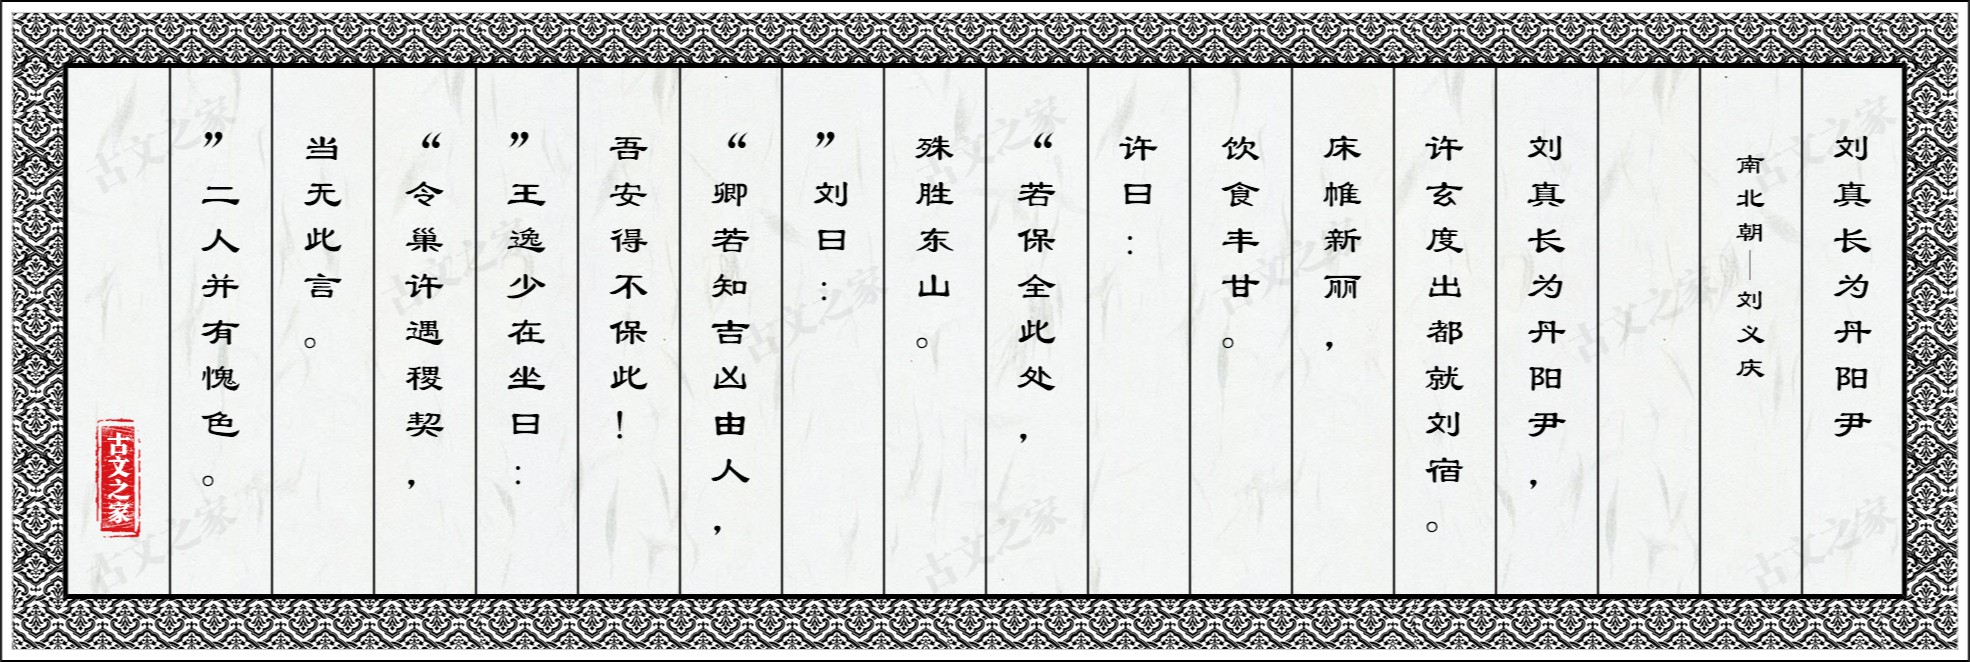 刘真长为丹阳尹
南北朝—刘义庆
刘真长为丹阳尹，
许玄度出都就刘宿。
床帷新丽，
饮食丰甘。
许曰：
“若保全此处，
殊胜东山。
”刘曰：
“卿若知吉凶由人，
吾安得不保此！
”王逸少在坐曰：
“令巢许遇稷契，
当无此言。
”二人并有愧色。
古文之家